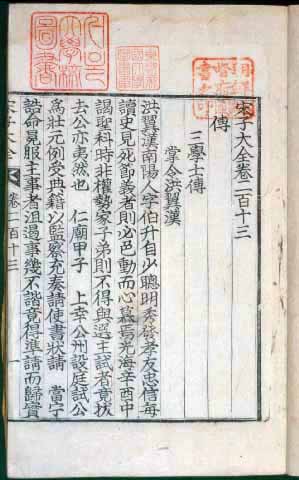 宋子大全卷二百十三
傳
三學士傳
掌令洪翼漢
洪翼漢南陽人字伯升自少聰明秀發孝友忠信每
讀史見死節義者則必色動而心慕焉光海辛酉中
謁聖科時非權勢家子弟則不得與選主試者竟拔
去公亦夷然也　仁廟甲子　上幸公州設庭試公
爲壯元例受典籍以監察充奏請使書狀請　當宁
誥命冕服主事者沮遏事幾不諧竟得準請而歸實
宋子大全 卷二百十三